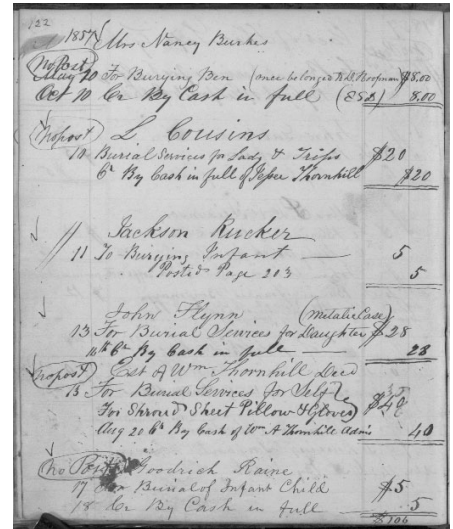 122
1857 Mrs Nancy Burks
No Post
May 10 For Burying Ben (once belonged R.D. Roopman) $8.00
Oct 10 Cr By Cash in full (ESD) 8.00
No post L Cousins
10 Burial Services for Lady & Trips $20
Cr By Cash in full of Jesse Thornhill $20
Jackson Rucker
11 To Burying Infant 5
Posted Page 203 5
John Flynn (Metalic Case)
13 For Burial Services for Daughter $28
Cr By Cash in full 28
No post Est of Wm Thornhill Decd
15 For Burial Services for Self &
For Shroud Sheet Pillow & Gloves $40
Aug 20 Cr By Cash of Wm A Thornhill Admr 40
No Post Goodrich Raine
17 For Burial of Infant Child $5
18 Cr By Cash in full 5
$106